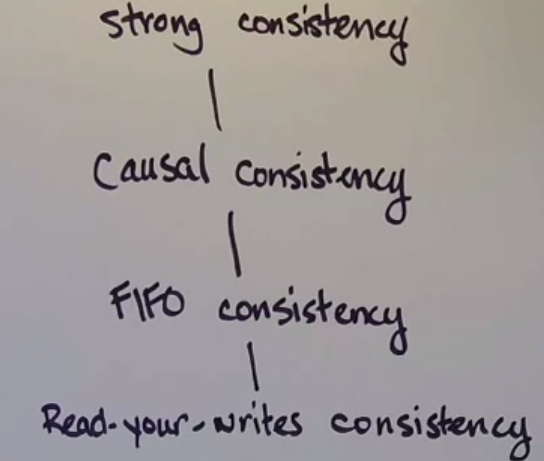 strong consistency
Causal consistency
FIFO consistency
Read-your-writes consistency